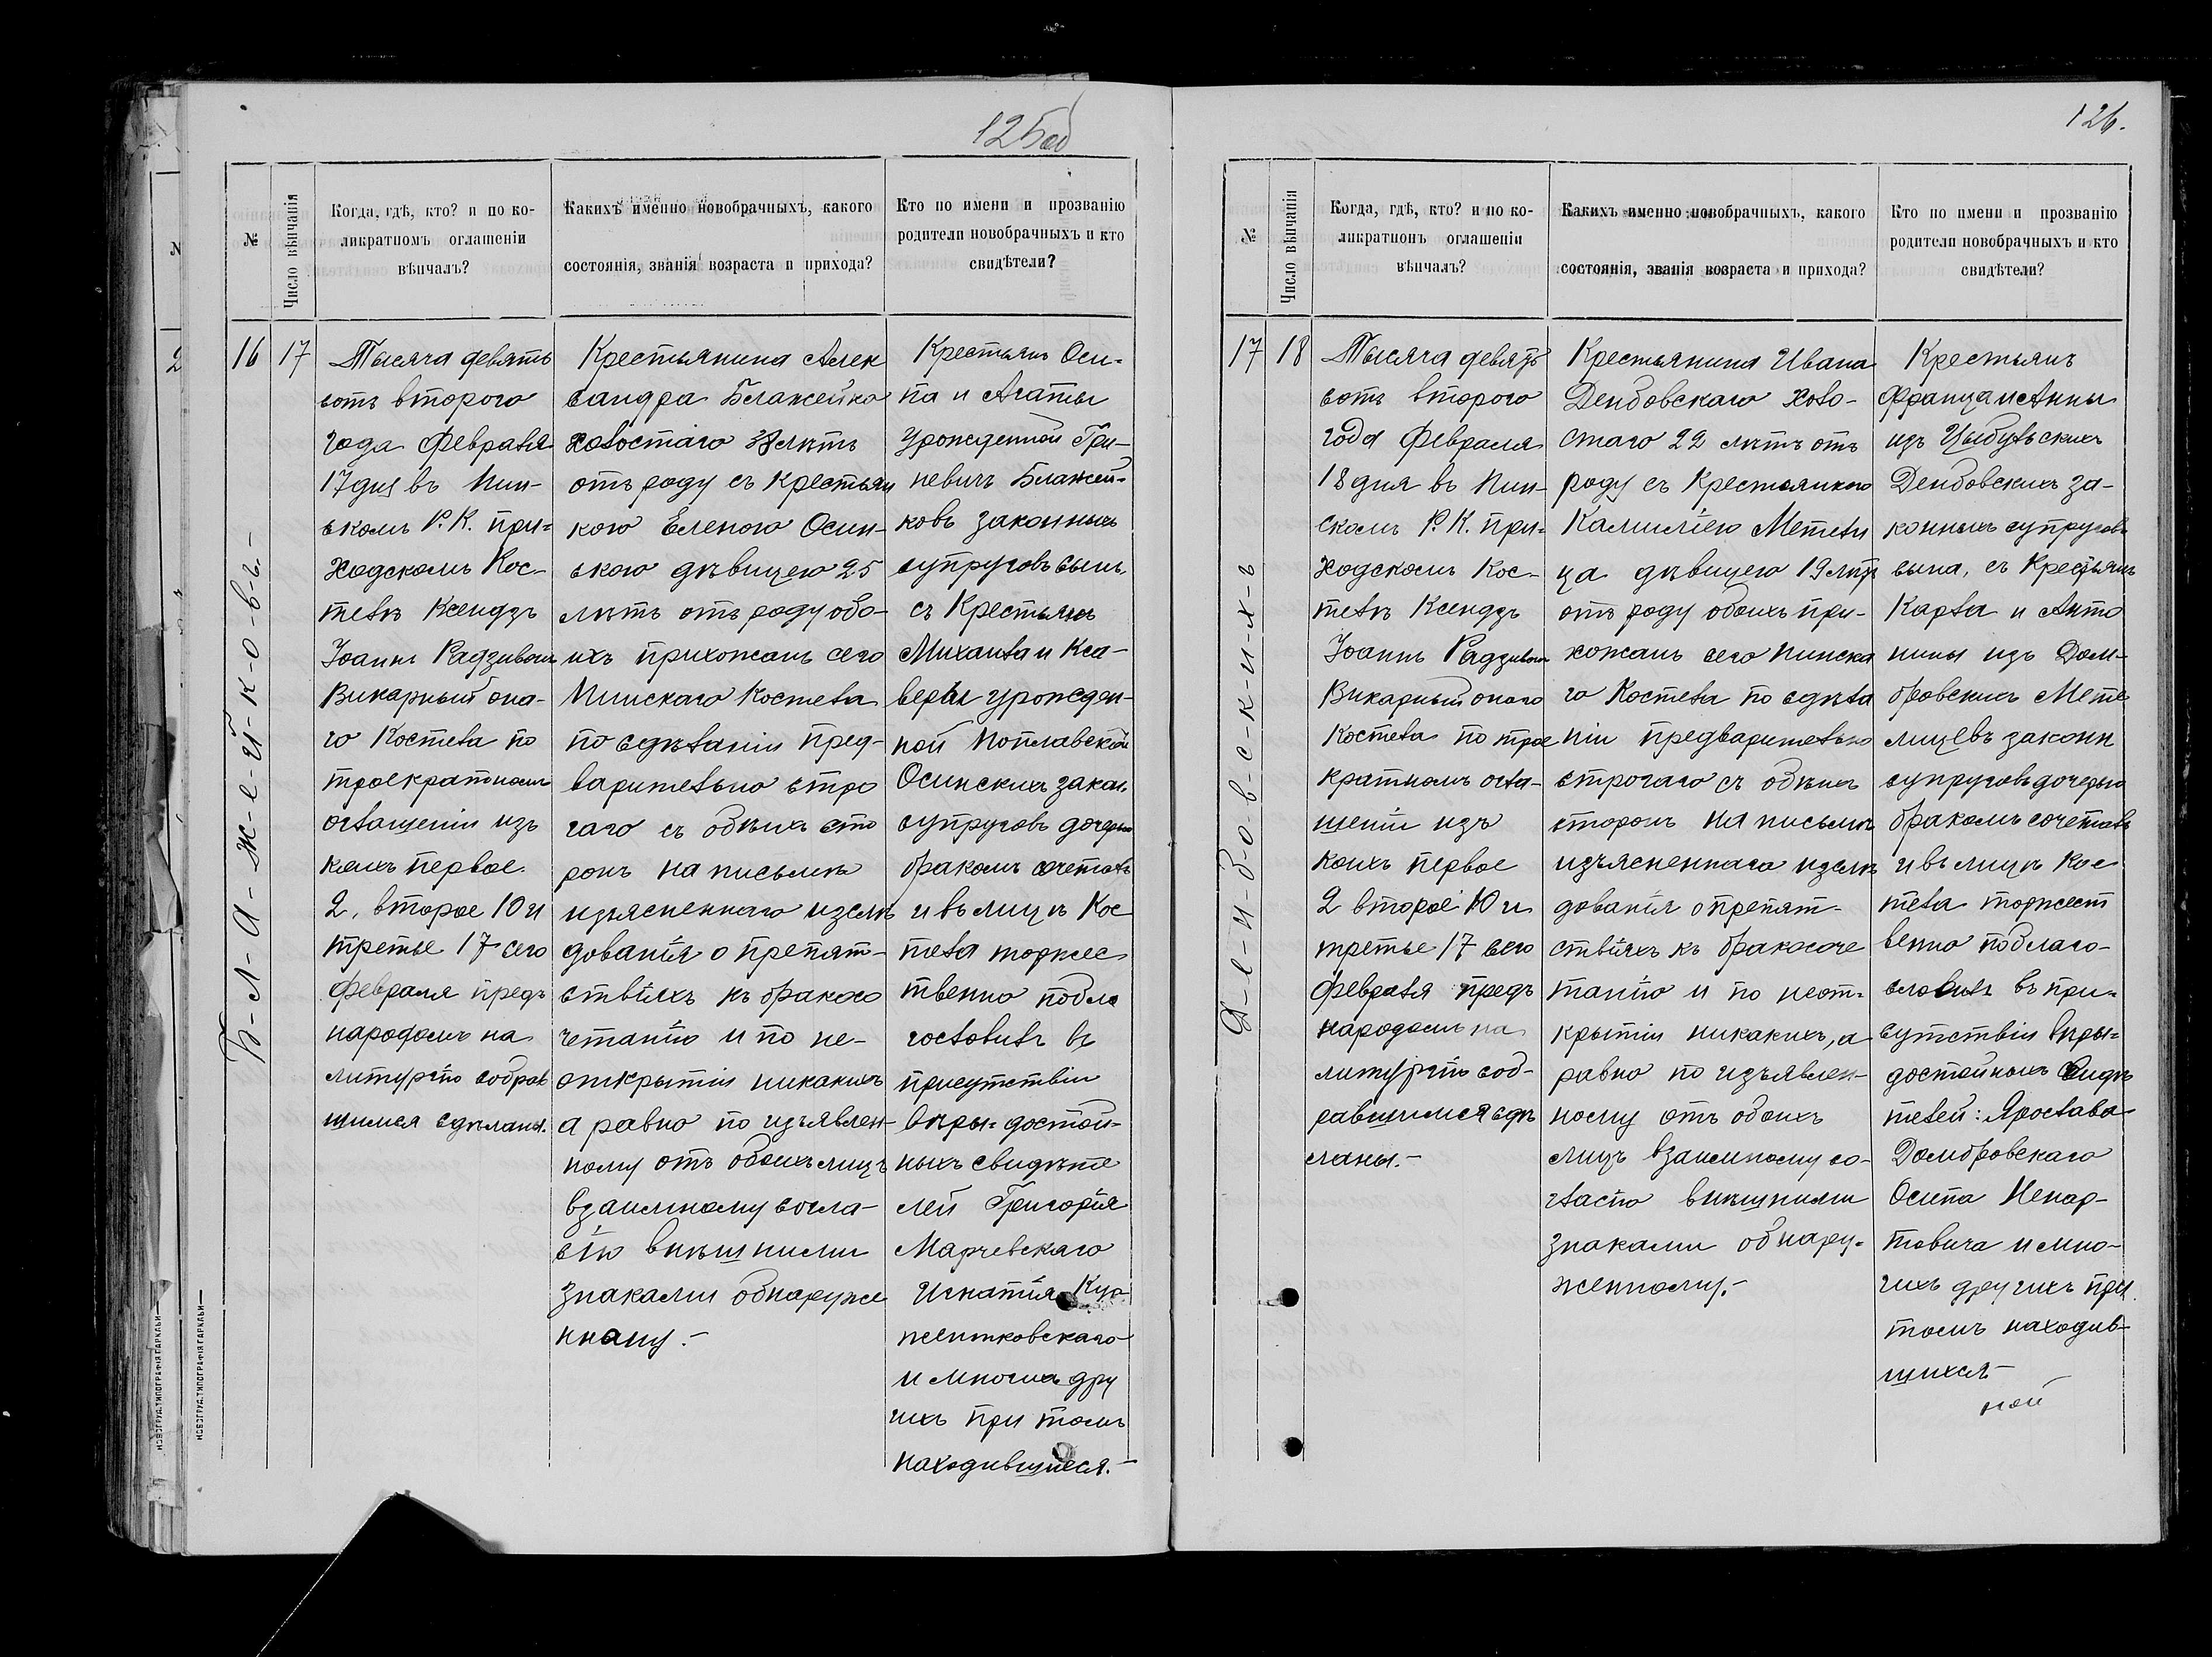 125об
№
Число вѣнчанія
Когда, гдѣ, кто? и по ко-
ликратномъ оглашеніи
вѣнчалъ?
Какихъ именно новобрачныхъ, какого
состоянія, званія возраста и прихода?
Кто по имени и прозванію
родители новобрачныхъ и кто
свидѣтели?
16
17
Б-л-а-ж-е-й-к-о-в-ъ.-
Тысяча девять
сотъ второго
года Февраля
17 дня въ Пин-
скомъ Р. К. при=
ходскомъ Кос-
телѣ Ксендзъ
Іоаннъ Радзивонъ
Викарный она-
го Костела по
троекратномъ
оглашеніи изъ
коихъ первое
2, второе 10 и
третье 17 сего
Февраля предъ
народомъ на
литургію собрав
шимся сдѣланы.
Крестьянина Алек
сандра Блажейко
холостаго лѣтъ
отъ роду съ крестьян
кою Еленою Осин-
скою дѣвицею 25
лѣтъ отъ роду обо-
ихъ прихожанъ сего
Пинскаго Костела
по сдѣланіи пред-
варительно стро
гаго съ обѣихъ сто
ронъ на письмѣ
изъясненнаго изслѣ
дованія о препят-
ствіяхъ къ бракосо
четанію и по не-
открытіи никакихъ
а равно по изъявлен-
ному отъ обоихъ лицъ
взаимному согла-
сію внѣшними
знаками обнаруже
нному.-
Крестьянъ Оси-
па и Агаты
урожденной Гри-
невичъ Блажей-
ковъ законныхъ
супруговъ сынъ,
съ Крестьянъ
Михаила и Кса-
веріи урожден-
ной Поплавской
Осинскихъ закон.
супруговъ дочерью
бракомъ сочеталъ
и въ лицѣ Кос
тела торжес
твенно побла
гословилъ въ
присутствіи
вѣры=достой-
ныхъ свидѣте
лей Григорія
Марчевскаго
Игнатія
и многихъ дру
гихъ при томъ
находившихся.-
НОВОГРУД. ТИПОГРАФІЯ ГАРКАВИ—
НОВОГРУД. ТИПОГРАФІЯ ГАРКАВИ—
126.
№
Число вѣнчанія
Когда, гдѣ, кто? и по ко-
ликратномъ оглашеніи
вѣнчалъ?
Какихъ именно новобрачныхъ, какого
состоянія, званія возраста и прихода?
Кто по имени и прозванію
родители новобрачныхъ и кто
свидѣтели?
17
18
Д-е-н-б-о-в-с-к-и-х-ъ
Тысяча девять
сотъ второго
года Февраля
18 дня въ Пин-
скомъ Р. К. при=
ходскомъ Кос-
телѣ Ксендзъ
Іоаннъ Радзивонъ
Викарный онаго
Костела по трое
кратномъ огла-
шеніи изъ
коихъ первое
2 второе 10 и
третье 17 сего
Февраля предъ
народомъ на
литургію соб-
равшимся сдѣ
ланы.-
Крестьянина Ивана
Дембовскаго холо-
стаго 22 лѣтъ отъ
роду съ Крестьянкою
Камиліею Метели
ца дѣвицею 19 лѣтъ
отъ роду обоихъ при-
хожанъ сего Пинска
го Костела по сдѣла
ніи предварительно
строгаго съ обѣихъ
сторонъ на письмѣ
изъясненнаго изслѣ
дованія о препят-
ствіяхъ къ бракосоче
танію и по неот-
крытіи никакихъ, а
равно по изъявлен-
ному отъ обоихъ
лицъ взаимному со-
гласію внѣшними
знаками обнару-
женному.-
Крестьянъ
Франца и Анны
изъ Цыбульскихъ
Дембовскихъ за-
конныхъ супруговъ
сына, съ Крестьянъ
Карла и Анто
нины изъ Дом-
бровскихъ Мете
лицевъ законн
супруговъ дочерью
бракомъ сочеталъ
и въ лицѣ Кос
тела торжест
венно поблаго-
словилъ въ при-
сутствіи вѣры=
достойныхъ свидѣ
телей: Ярослава
Домбровскаго
Осипа Ненар-
товича и мно-
гихъ другихъ при
томъ находив-
шихся-